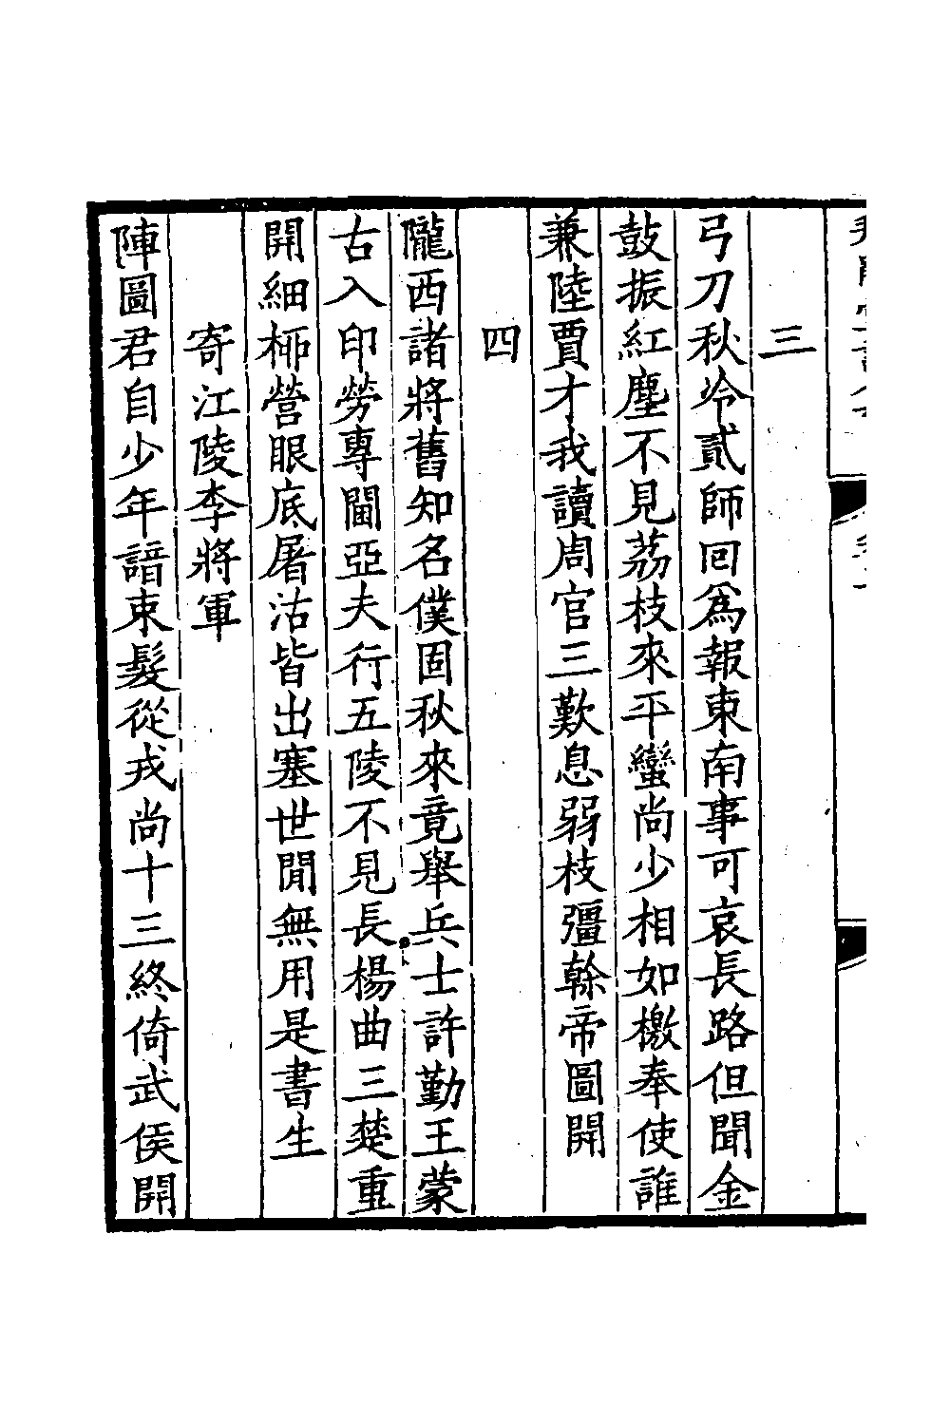 三
弓刀秋冷貳師回為報東南事可哀長路但聞金
鼓振紅塵不見荔枝來平蠻尚少相如檄奉使誰
兼陸賈才我讀周官三歎息弱枝彊榦帝圖開
四
隴西諸將舊知名僕固秋來竟舉兵士許勤王蒙
古入印勞專閫亞夫行五陵不見長楊曲三楚重
開細柳營眼底屠沽皆出塞世閒無用是書生
寄江陵李將軍
陣圖君自少年諳束髮從戎尚十三終倚武侯開